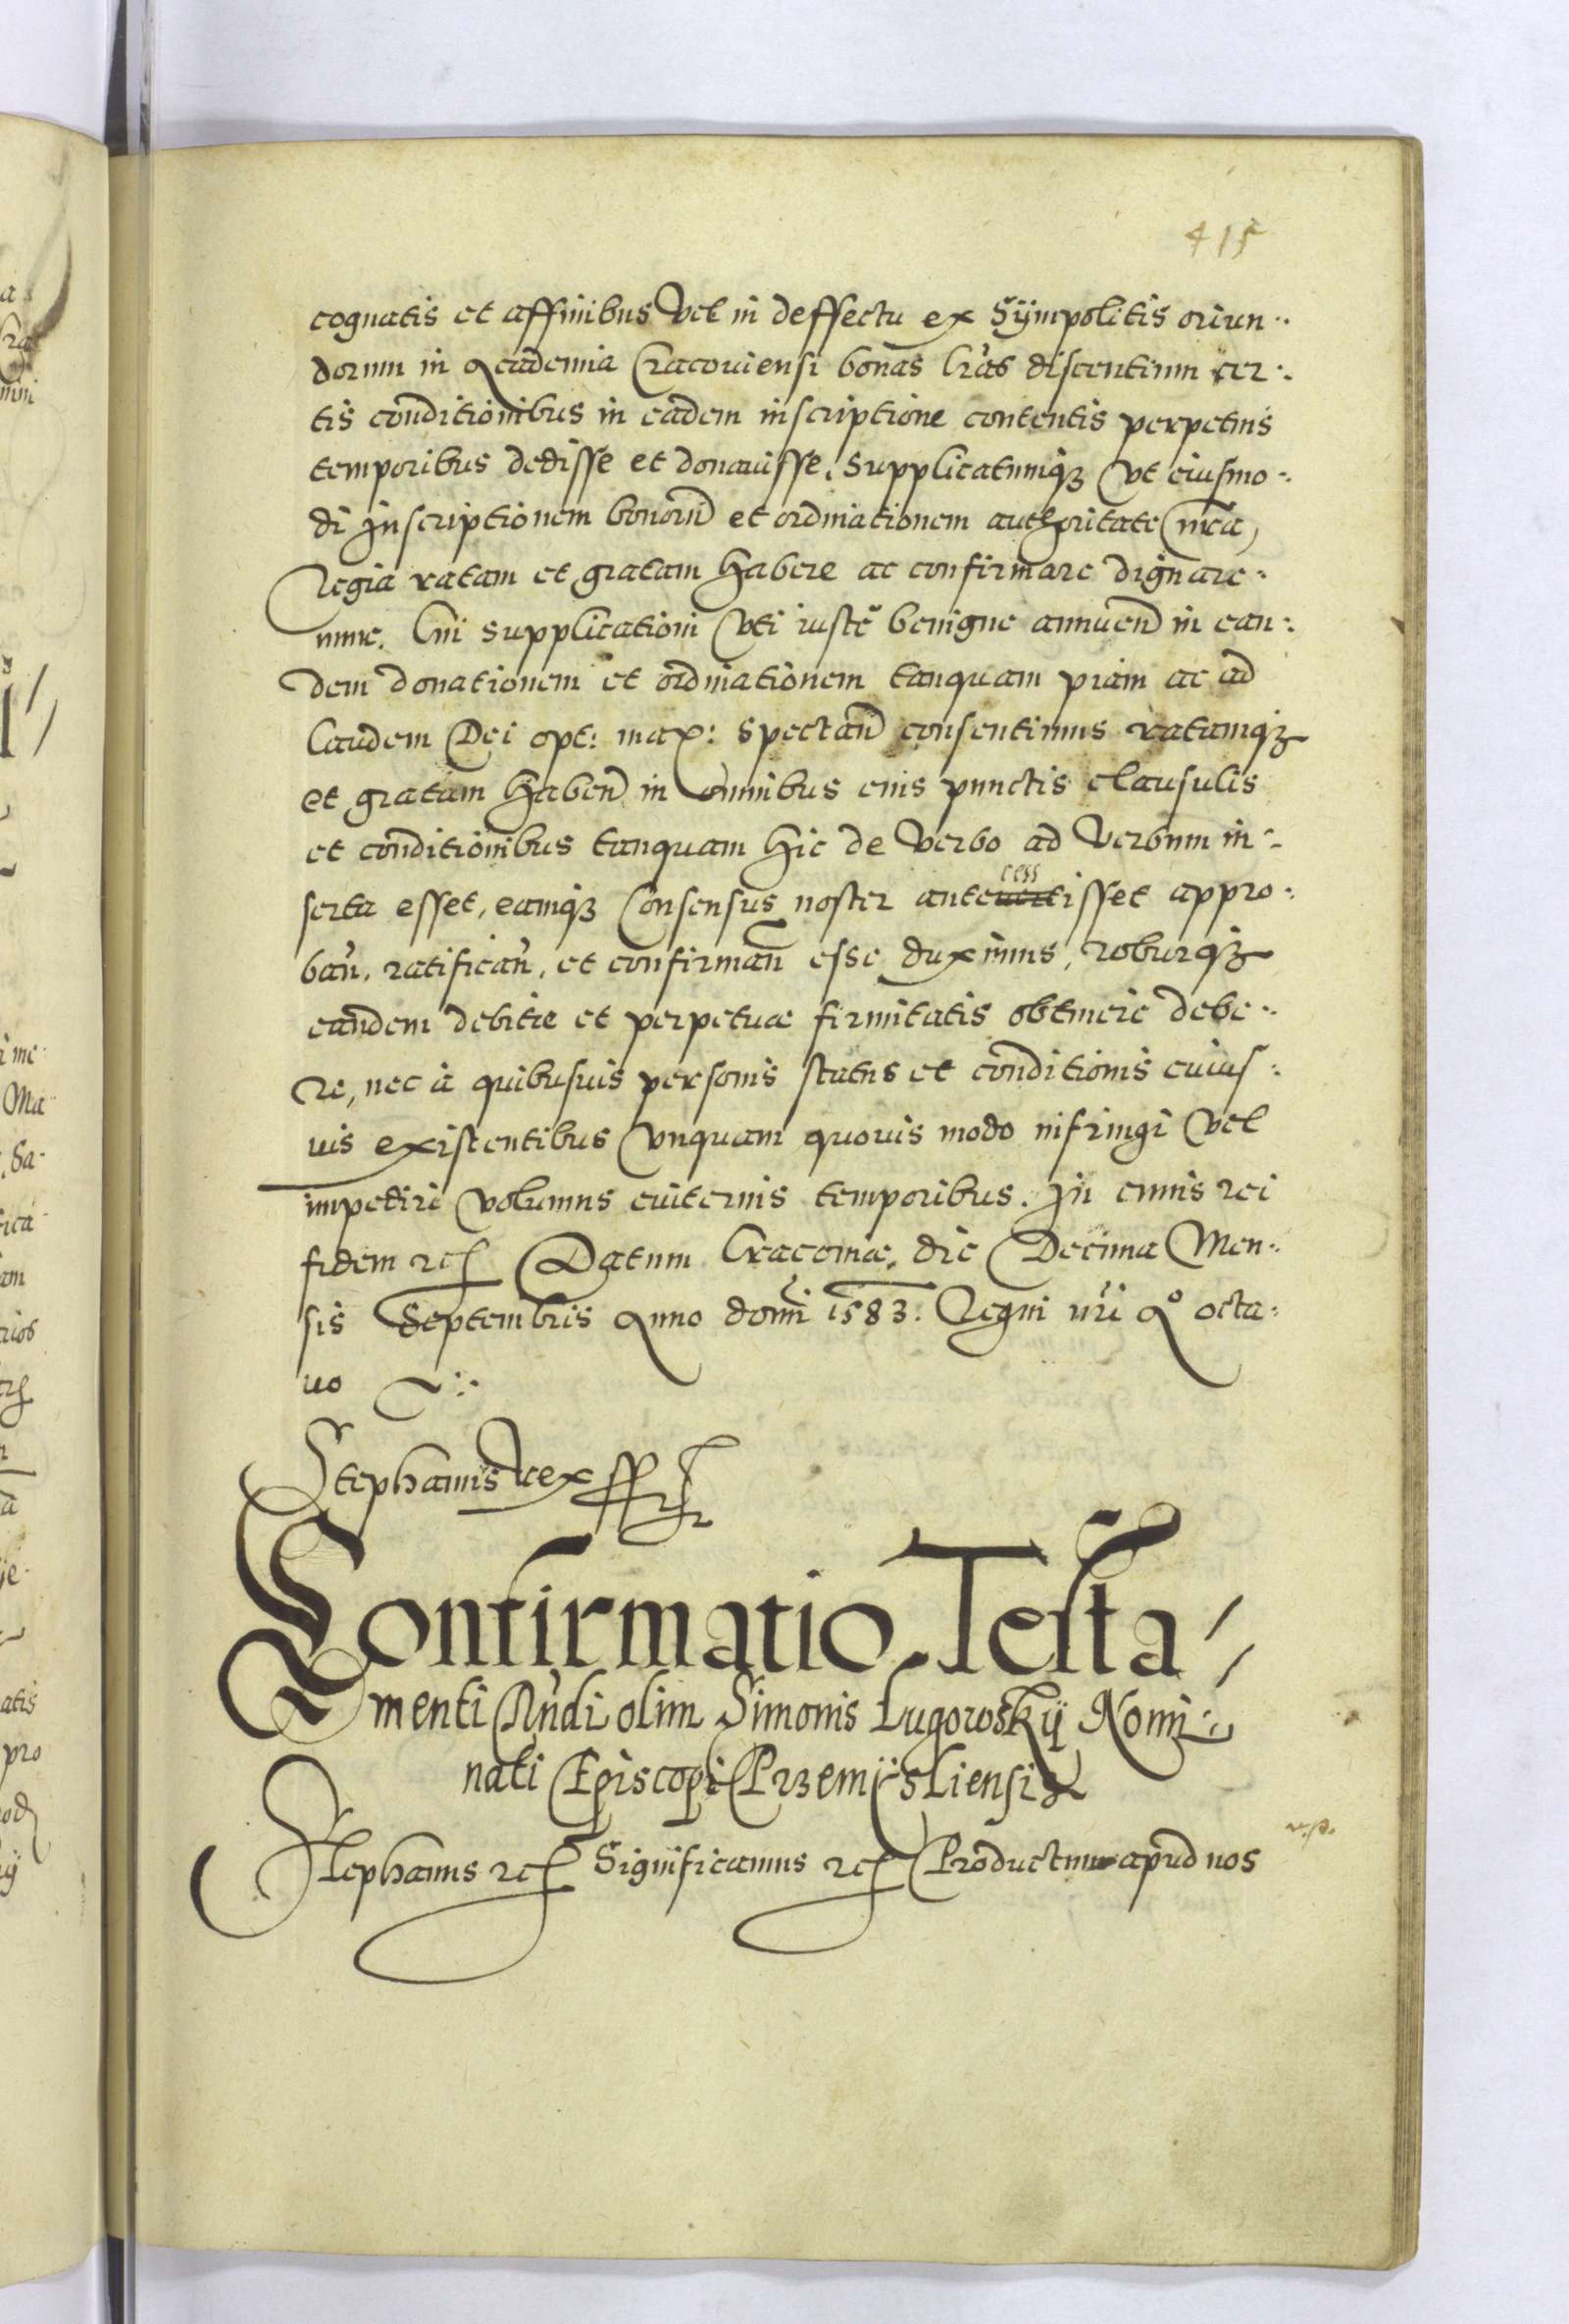 415
cognatis et affinibus Vel in deffectu ex Sÿmpolitis oriun-
dorum in Academia Cracouiensi bonas lr̃as discentium cer-
tis conditionibus in eadem inscriptione contentis perpetuis
temporibus dedisse et donauisse, Supplicatumqꝫ Vt eiusmo-
di Inscriptionem bonorũ et ordinationem authoritate nr̃a
Regia ratam et gratam habere ac confirmare dignare-
mur. Cui supplicationi Vti iustę benigne annuen̄ in ean-
dem donationem et ordinationem tanquam piam ac ad
Laudem Dei opt: max: Spectan̄ consentimus ratamqꝫ
et gratam haben̄ in omnibus eius punctis clausulis
et conditionibus tanquam hic de Verbo ad Verbum in-
serta esset, eamqꝫ Consensus noster antecessisset appro-
ban̄, ratifican̄, et confirman̄ esse duximus, roburqꝫ
eandem debitæ et perpetuæ firmitatis obtinere debe-
re, nec à quibusuis personis status et conditionis cuius-
uis existentibus Vnquam quouis modo infringi Vel
impediri Volumus euiternis temporibus. In cuius rei
fidem etc Datum Cracouiæ, die Decima Men-
sis Septembris Anno domĩ 1583. Regni nr̃i Aº octa-
uo
Stephanus Rex ss
Confirmatio Testa
menti Rñdi olim Simonis Lugowskÿ Nomi-
nati Episcopi Przemÿsliensis
Stephanus etc Significamus etc Productum apud nos